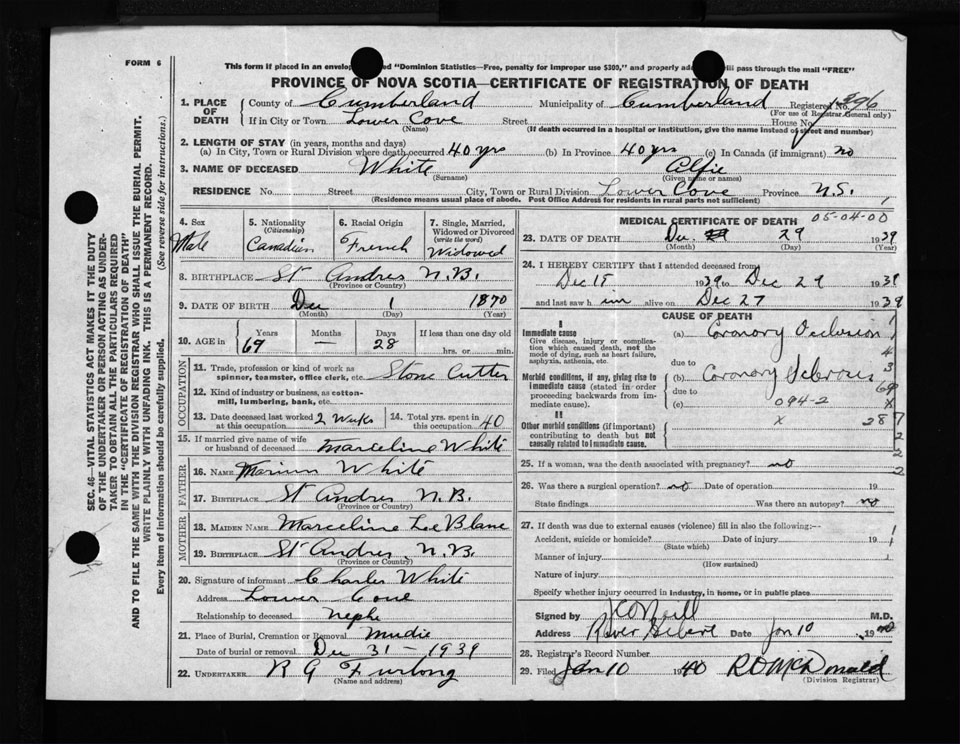 FORM 6
This form if placed in an envelope "Dominion Statistics—Free, penalty for improper use $300," and properly will pass through the mail "FREE"
PROVINCE OF NOVA SCOTIA—CERTIFICATE OF REGISTRATION OF DEATH
1. PLACE OF DEATH County of Cumberland Municipality of Cumberland Registered No. 396
(For use of Registrar General only)
If in City or Town Lower Cove Street House No.
(Name) (If death occurred in a hospital or institution, give the name instead of street and number)
2. LENGTH OF STAY (in years, months and days)
(a) In City, Town or Rural Division where death occurred 40 yrs (b) In Province 40 yrs (c) In Canada (if immigrant) no
3. NAME OF DECEASED White Alfie
(Surname) (Given name or names)
RESIDENCE No. Street City, Town or Rural Division Lower Cove Province N.S.
(Residence means usual place of abode. Post Office Address for residents in rural parts not sufficient)
4. Sex Male
5. Nationality (Citizenship) Canadian
6. Racial Origin French
7. Single, Married, Widowed or Divorced (write the word) Widowed
8. BIRTHPLACE St Andres N.B.
(Province or County)
9. DATE OF BIRTH Dec 1 1870
(Month) (Day) (Year)
10. AGE in Years 69 Months — Days 28 If less than one day old hrs. or min.
OCCUPATION
11. Trade, profession or kind of work as spinner, teamster, office clerk, etc. Stone Cutter
12. Kind of industry or business, as cotton-mill, lumbering, bank, etc.
13. Date deceased last worked at this occupation 2 Weeks
14. Total yrs. spent in this occupation 40
15. If married give name of wife or husband of deceased Marceline White
FATHER
16. NAME White
17. BIRTHPLACE St Andres N.B.
(Province or Country)
MOTHER
18. MAIDEN NAME Marceline Le Blanc
19. BIRTHPLACE St Andres N.B.
(Province or Country)
20. Signature of informant Charles White
Address Lower Cove
Relationship to deceased Nephe
21. Place of Burial, Cremation or Removal
Date of burial or removal Dec 31 - 1939
22. UNDERTAKER R G Furlong
(Name and address)
MEDICAL CERTIFICATE OF DEATH 05-04-00
23. DATE OF DEATH Dec 29 1939
(Month) (Day) (Year)
24. I HEREBY CERTIFY that I attended deceased from
Dec 15 1939 to Dec 29 1939
and last saw h im alive on Dec 27 1939
CAUSE OF DEATH
I
Immediate cause
Give disease, injury or complication which caused death, not the mode of dying, such as heart failure, asphyxia, asthenia, etc.
(a) Coronary Occlusion
due to
Morbid conditions, if any, giving rise to immediate cause (stated in order proceeding backwards from immediate cause).
(b) Coronary Sclerosis
due to
(c) 094-2
II
Other morbid conditions (if important) contributing to death but not causally related to immediate cause.
x 28
1
4
3
69
x
7
2
2
2
25. If a woman, was the death associated with pregnancy? no
26. Was there a surgical operation? no Date of operation 19
State findings Was there an autopsy? no
27. If death was due to external causes (violence) fill in also the following:—
Accident, suicide or homicide? Date of injury 19
(State which)
Manner of injury
(How sustained)
Nature of injury
Specify whether injury occurred in industry, in home, or in public place
Signed by M.D.
Address River Hebert Date Jan 10 1940
28. Registrar's Record Number
29. Filed Jan 10 1940 R D McDonald
(Division Registrar)
SEC. 46—VITAL STATISTICS ACT MAKES IT THE DUTY
OF THE UNDERTAKER OR PERSON ACTING AS UNDER-
TAKER TO OBTAIN ALL THE PARTICULARS REQUIRED
IN THE "CERTIFICATE OF REGISTRATION OF DEATH"
AND TO FILE THE SAME WITH THE DIVISION REGISTRAR WHO SHALL ISSUE THE BURIAL PERMIT.
WRITE PLAINLY WITH UNFADING INK. THIS IS A PERMANENT RECORD.
Every item of information should be carefully supplied. (See reverse side for instructions.)